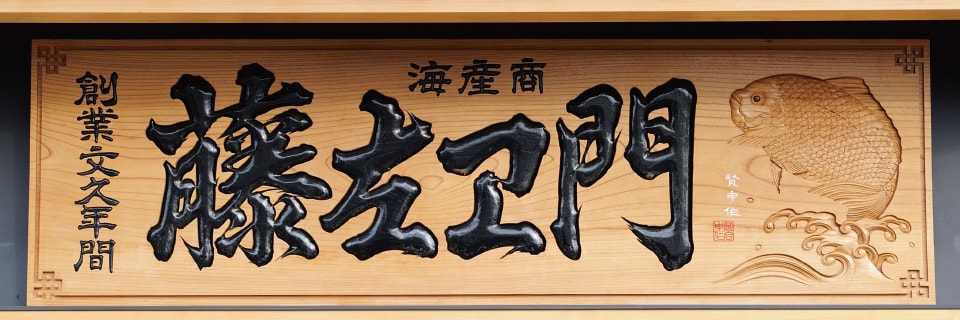 海産商
藤左ヱ門
創業文久年間
賢申作